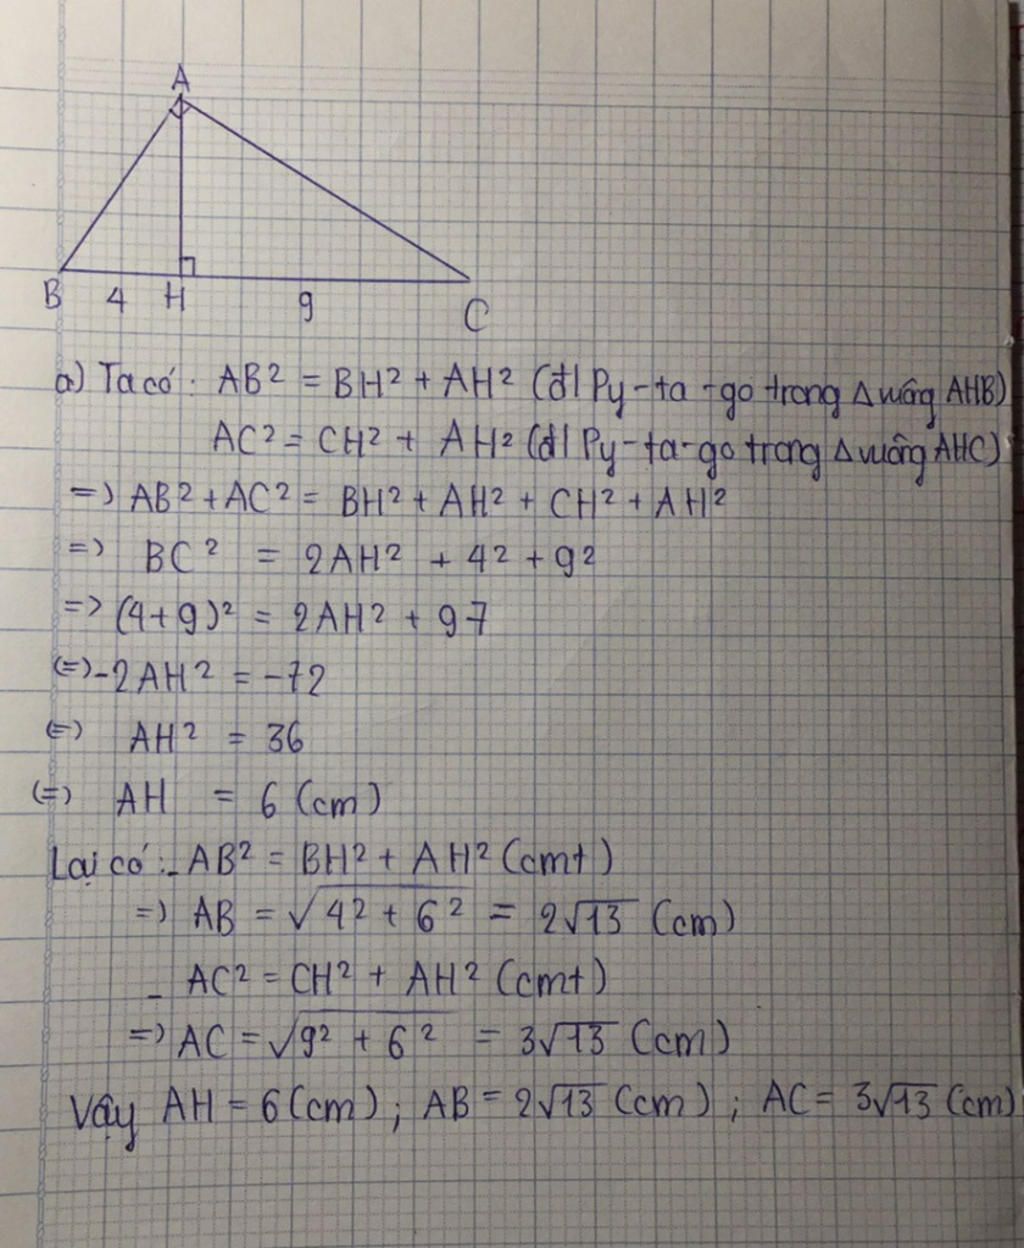 A
B 4 H 9 C
a) Ta có: AB² = BH² + AH² (đl Py-ta-go trong Δ vuông AHB)
AC² = CH² + AH² (đl Py-ta-go trong Δ vuông AHC)
=> AB² + AC² = BH² + AH² + CH² + AH²
=> BC² = 2AH² + 4² + 9²
=> (4+9)² = 2AH² + 97
(=) -2AH² = -72
(=) AH² = 36
(=) AH = 6 (cm)
Lại có: - AB² = BH² + AH² (cmt)
=> AB = √(4² + 6²) = 2√13 (cm)
- AC² = CH² + AH² (cmt)
=> AC = √(9² + 6²) = 3√13 (cm)
Vậy AH = 6 (cm); AB = 2√13 (cm); AC = 3√13 (cm)